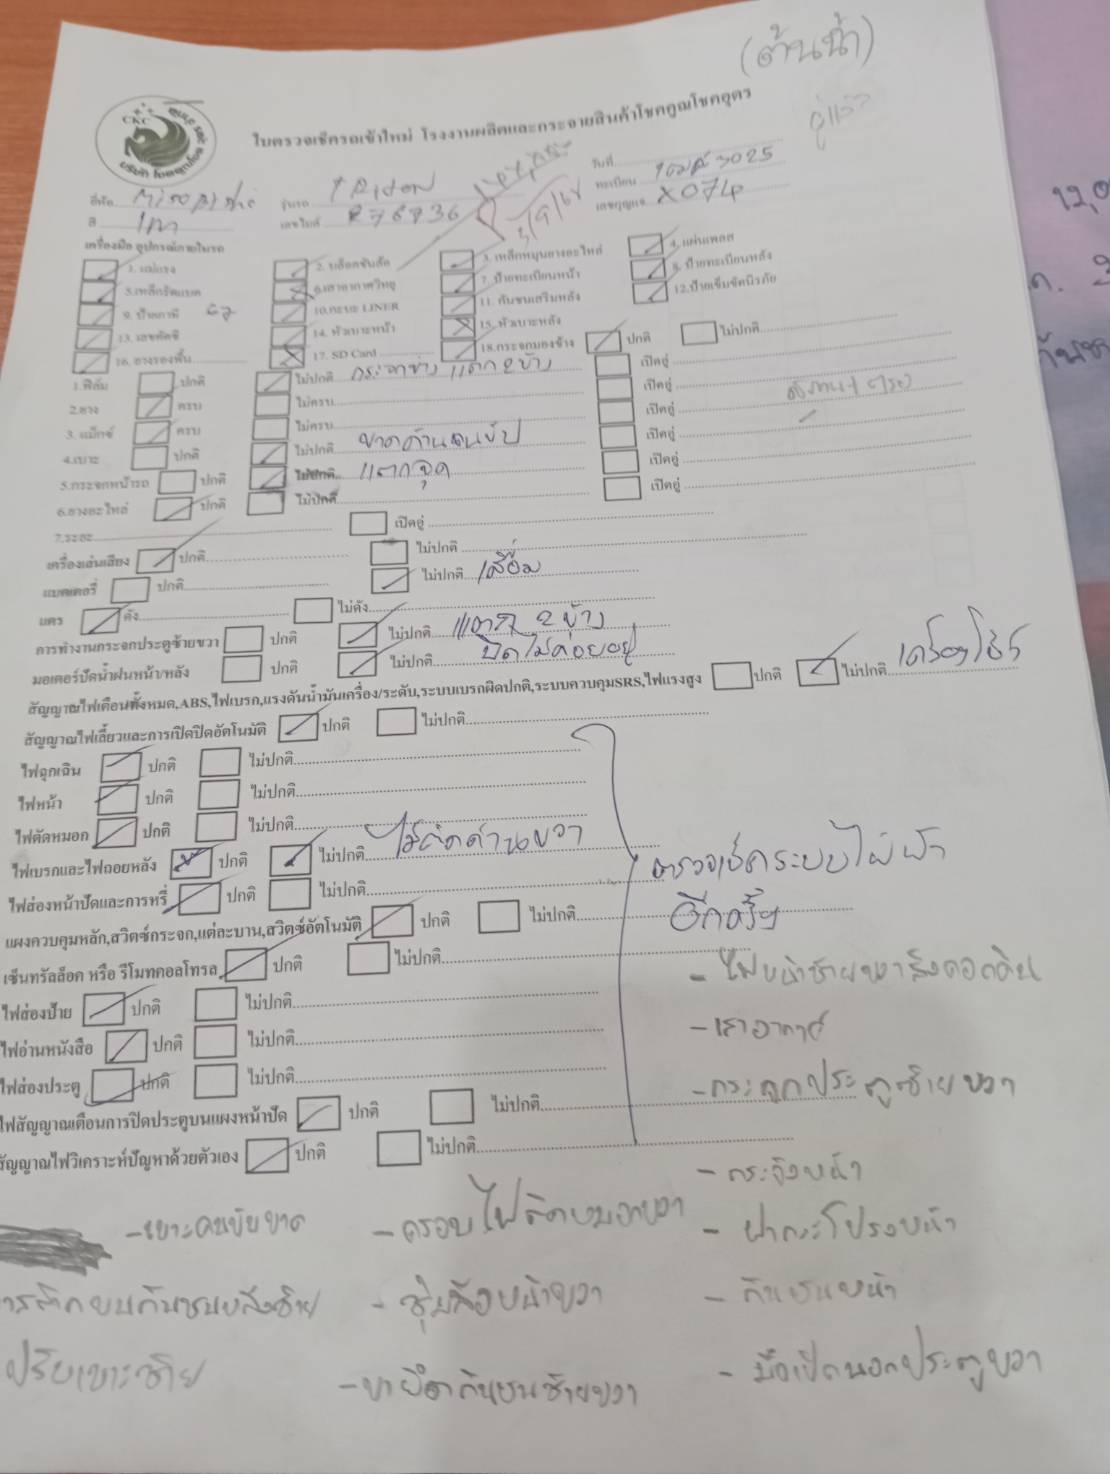 (ต้นน้ำ)
CKC
ใบตรวจเช็ครถเข้าใหม่ โรงงานผลิตและกระจายสินค้าโชคคูณโชคอุดร
ยี่ห้อ รุ่นรถ TRITON วันที่
สี เทา เลขไมล์ 276736 ทะเบียน 3025
เลขกุญแจ X074
เครื่องมือ อุปกรณ์ภายในรถ
1. แม่แรง 2. บล็อกขันล้อ 3. เหล็กหมุนยางอะไหล่ 4. แผ่นเพลส
5.เหล็กรัดแบต 6.เสาอากาศวิทยุ 7. ป้ายทะเบียนหน้า 8. ป้ายทะเบียนหลัง
9. ป้ายภาษี 67 10.กระบะ LINER 11. กันชนเสริมหลัง 12.ป้ายเข็มขัดนิรภัย
13. เลขคัทซี 14. หัวเบาะหน้า 15. หัวเบาะหลัง
16. ยางรองพื้น 17. SD Card 18.กระจกมองข้าง ปกติ ไม่ปกติ
1.ฟิล์ม ปกติ ไม่ปกติ กระจกข้าง แตก 2 ข้าง เปิดอู่
2.ยาง ครบ ไม่ครบ เปิดอู่
3. แม็กซ์ ครบ ไม่ครบ เปิดอู่
4.เบาะ ปกติ ไม่ปกติ ขาดด้านคนขับ เปิดอู่
5.กระจกหน้ารถ ปกติ ไม่ปกติ แตกจุด เปิดอู่
6.ยางอะไหล่ ปกติ ไม่ปกติ เปิดอู่
7.ระยะ เปิดอู่
เครื่องเล่นเสียง ปกติ ไม่ปกติ
แบตเตอรี่ ปกติ ไม่ปกติ เสื่อม
แตร ดัง ไม่ดัง
การทำงานกระจกประตูซ้ายขวา ปกติ ไม่ปกติ แตก 2 ข้าง
มอเตอร์ปัดน้ำฝนหน้า/หลัง ปกติ ไม่ปกติ ปัดไม่ค่อยอยู่
สัญญาณไฟเตือนทั้งหมด,ABS,ไฟเบรก,แรงดันน้ำมันเครื่อง/ระดับ,ระบบเบรกผิดปกติ,ระบบควบคุมSRS,ไฟแรงสูง ปกติ ไม่ปกติ เครื่องโชว์
สัญญาณไฟเลี้ยวและการเปิดปิดอัตโนมัติ ปกติ ไม่ปกติ
ไฟฉุกเฉิน ปกติ ไม่ปกติ
ไฟหน้า ปกติ ไม่ปกติ
ไฟตัดหมอก ปกติ ไม่ปกติ
ไฟเบรกและไฟถอยหลัง ปกติ ไม่ปกติ ไม่ติดด้านขวา
ไฟส่องหน้าปัดและการหรี่ ปกติ ไม่ปกติ
ตรวจเช็คระบบไฟฟ้า
อีกครั้ง
แผงควบคุมหลัก,สวิตซ์กระจก,แต่ละบาน,สวิตซ์อัตโนมัติ ปกติ ไม่ปกติ
เซ็นทรัลล็อค หรือ รีโมทคอลโทรล ปกติ ไม่ปกติ
ไฟส่องป้าย ปกติ ไม่ปกติ
ไฟอ่านหนังสือ ปกติ ไม่ปกติ
ไฟส่องประตู ปกติ ไม่ปกติ
ไฟสัญญาณเตือนการปิดประตูบนแผงหน้าปัด ปกติ ไม่ปกติ
สัญญาณไฟวิเคราะห์ปัญหาด้วยตัวเอง ปกติ ไม่ปกติ
- เสาอากาศ
- กระจกประตูซ้ายขวา
- กระจังหน้า
- เบาะคนขับขาด
- ครอบไฟตัดหมอกขวา
- ฝากระโปรงหน้า
- ซุ้มล้อหน้าขวา
- กันชนหน้า
ปรับเบาะซ้าย
- ขายึดกันชนซ้ายขวา
- มือเปิดนอกประตูขวา